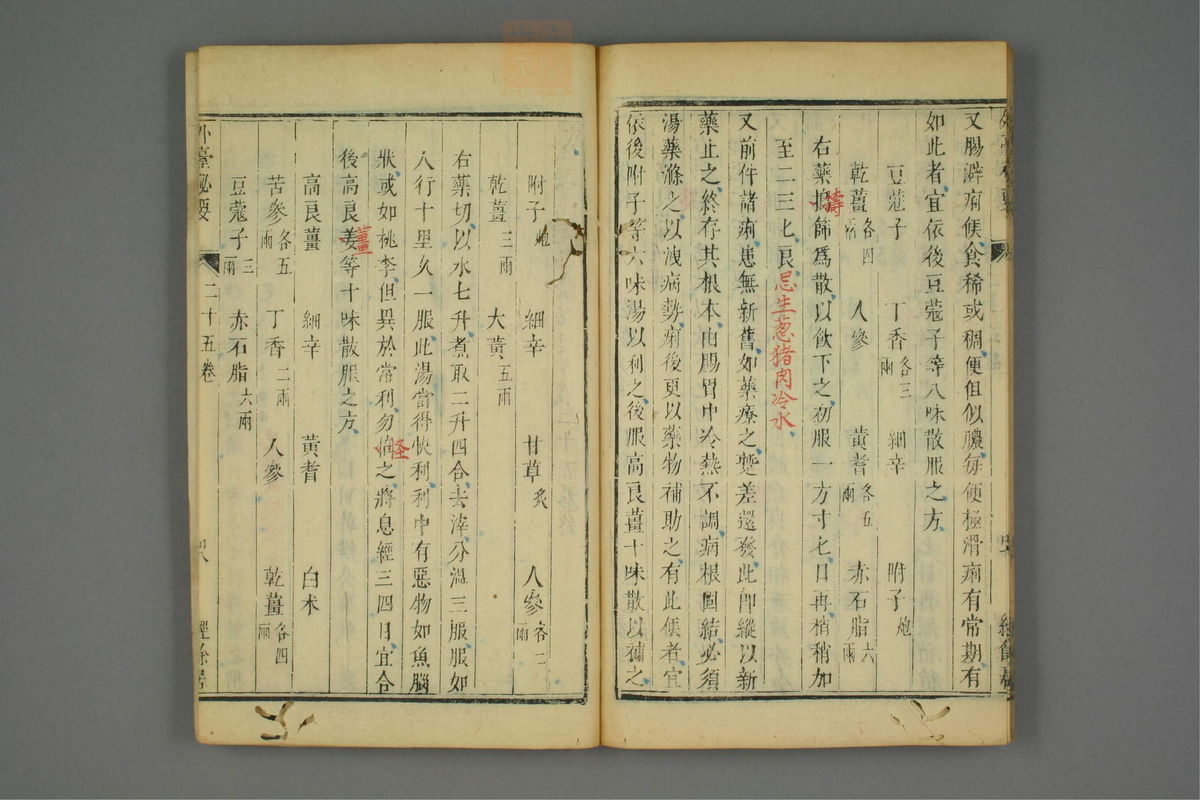 又腸澼痢候食稀或稠便但似膿每便極滑痢有常期有
如此者宜依後豆蔻子等八味散服之方
豆蔻子 丁香各三兩 細辛 附子炮
乾薑各四兩 人參 黃耆各五兩 赤石脂六兩
右藥擣篩為散以飲下之初服一方寸七日再稍稍加
至二三七良忌生葱猪肉冷水
又前件諸痢患無新舊如藥療之蹔差還發此即縱以新
藥止之終存其根本由腸胃中冷熱不調病根固結必須
湯藥滌之以洩病勢痢後更以藥物補助之有此候者宜
依後附子等六味湯以利之後服高良薑十味散以補之
附子炮 細辛 甘草炙 人參各二兩
乾薑三兩 大黃五兩
右藥切以水七升煮取二升四合去滓分溫三服服如
人行十里久一服此湯當得快利利中有惡物如魚腦
狀或如桃李但異於常利勿怪之將息經三四日宜合
後高良薑等十味散服之方
高良薑 細辛 黃耆 白朮
苦參各五兩 丁香二兩 人參 乾薑各四兩
豆蔻子三兩 赤石脂六兩
外臺秘要 二十五卷 經餘居